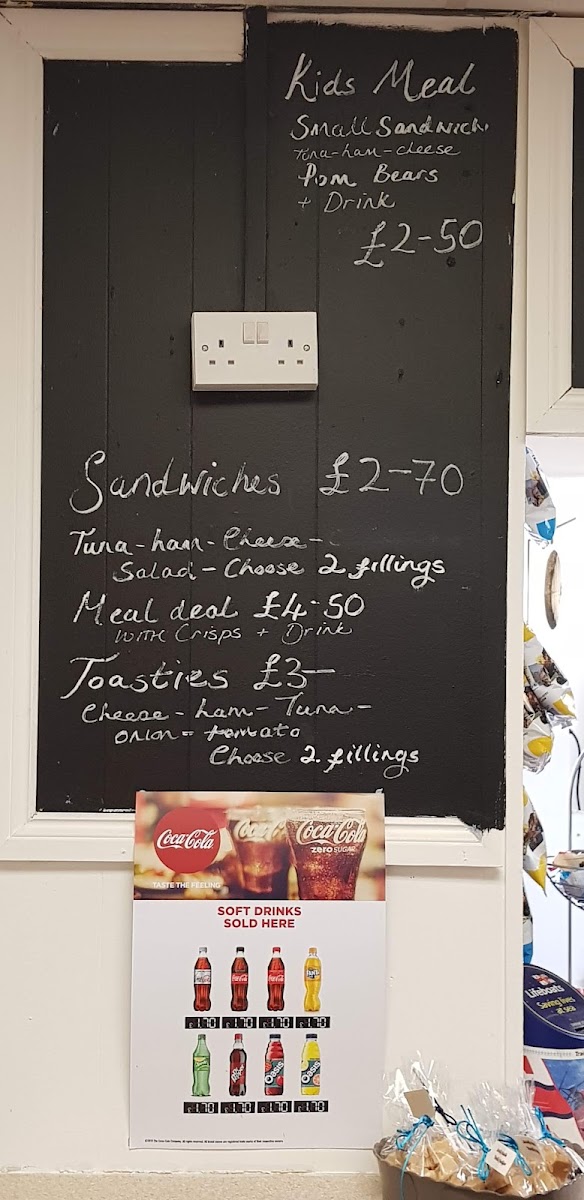 Kids Meal
Small Sandwich
tuna-ham-cheese
Pom Bears
+ Drink
£2-50
Sandwiches £2-70
Tuna-ham-Cheese-
Salad-Choose 2 fillings
Meal deal £4-50
with Crisps + Drink
Toasties £3—
Cheese-ham-Tuna-
onion-tomato
Choose 2 fillings
Coca-Cola
Coca-Cola
zero SUGAR
TASTE THE FEELING
SOFT DRINKS
SOLD HERE
£1.70 £1.70 £1.70 £1.70
£1.70 £1.70 £1.70 £1.70
Lifeboats
Saving lives
at sea